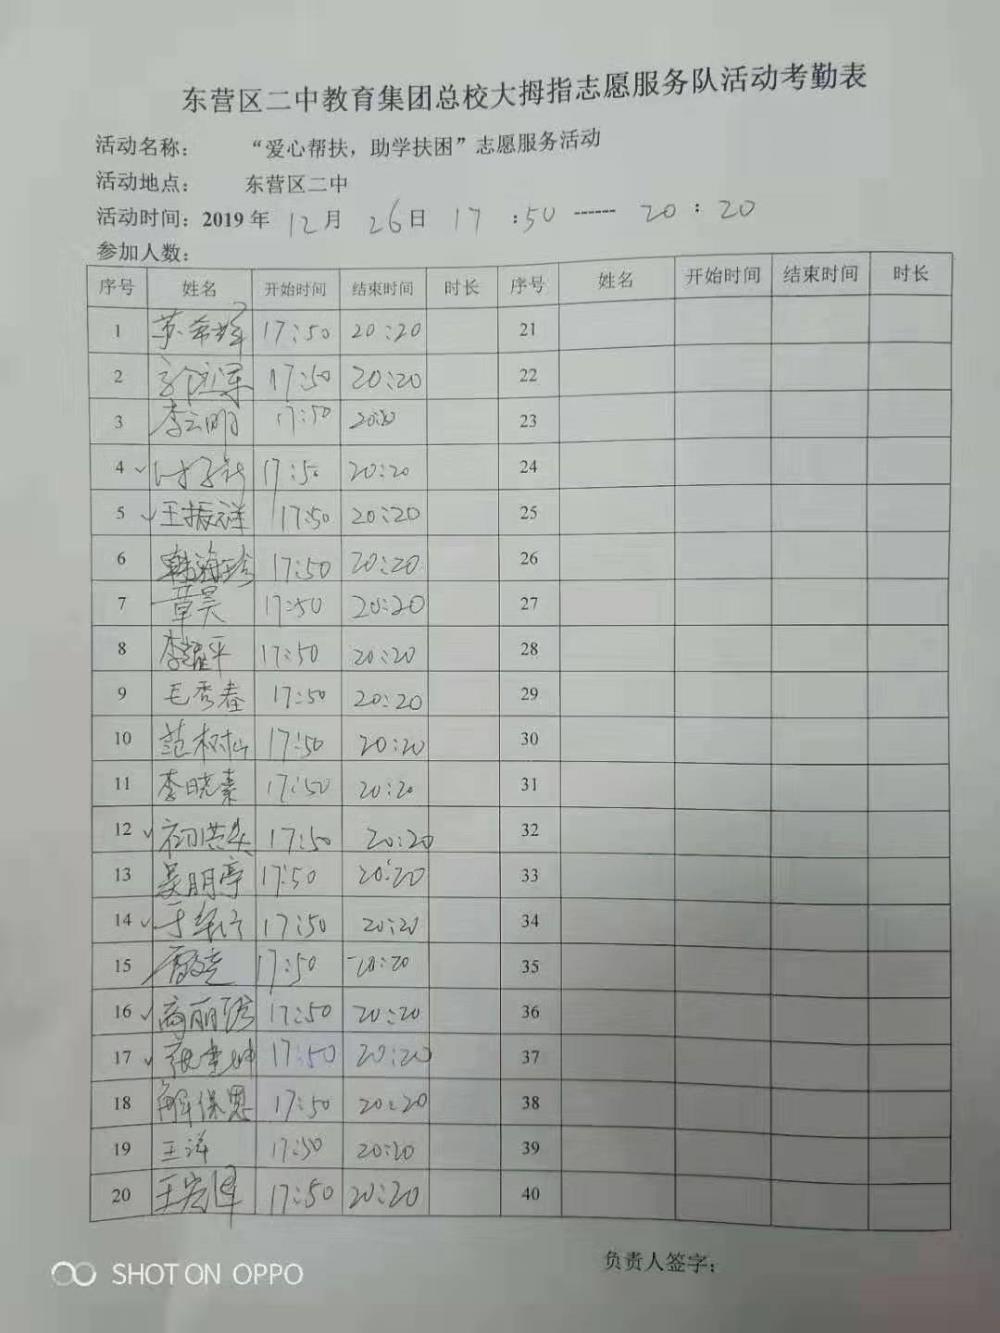 东营区二中教育集团总校大拇指志愿服务队活动考勤表
活动名称： “爱心帮扶，助学扶困”志愿服务活动
活动地点： 东营区二中
活动时间：2019年 12月 26日 17 :50 ------ 20 : 20
参加人数：
序号 姓名 开始时间 结束时间 时长 序号 姓名 开始时间 结束时间 时长
1 17:50 20:20 21
2 17:50 20:20 22
3 李云明 17:50 23
4 17:50 20:20 24
5 王振祥 17:50 20:20 25
6 韩海珍 17:50 20:20 26
7 章昊 17:50 20:20 27
8 李耀平 17:50 20:20 28
9 毛秀春 17:50 20:20 29
10 范树山 17:50 20:20 30
11 李晓素 17:50 20:20 31
12 17:50 20:20 32
13 吴明亭 17:50 20:20 33
14 17:50 20:20 34
15 17:50 20:20 35
16 17:50 20:20 36
17 17:50 20:20 37
18 解保恩 17:50 20:20 38
19 王洋 17:50 20:20 39
20 17:50 20:20 40
负责人签字：
SHOT ON OPPO